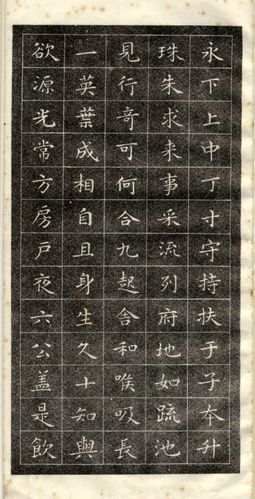 永下上中丁寸守持扶于子夲升
珠朱求来事采流列府地如疏池
見行奇可何合九起舍和喉吸長
一英葉成相自且身生久十知與
欲源光常方房戶夜六公盖是飲